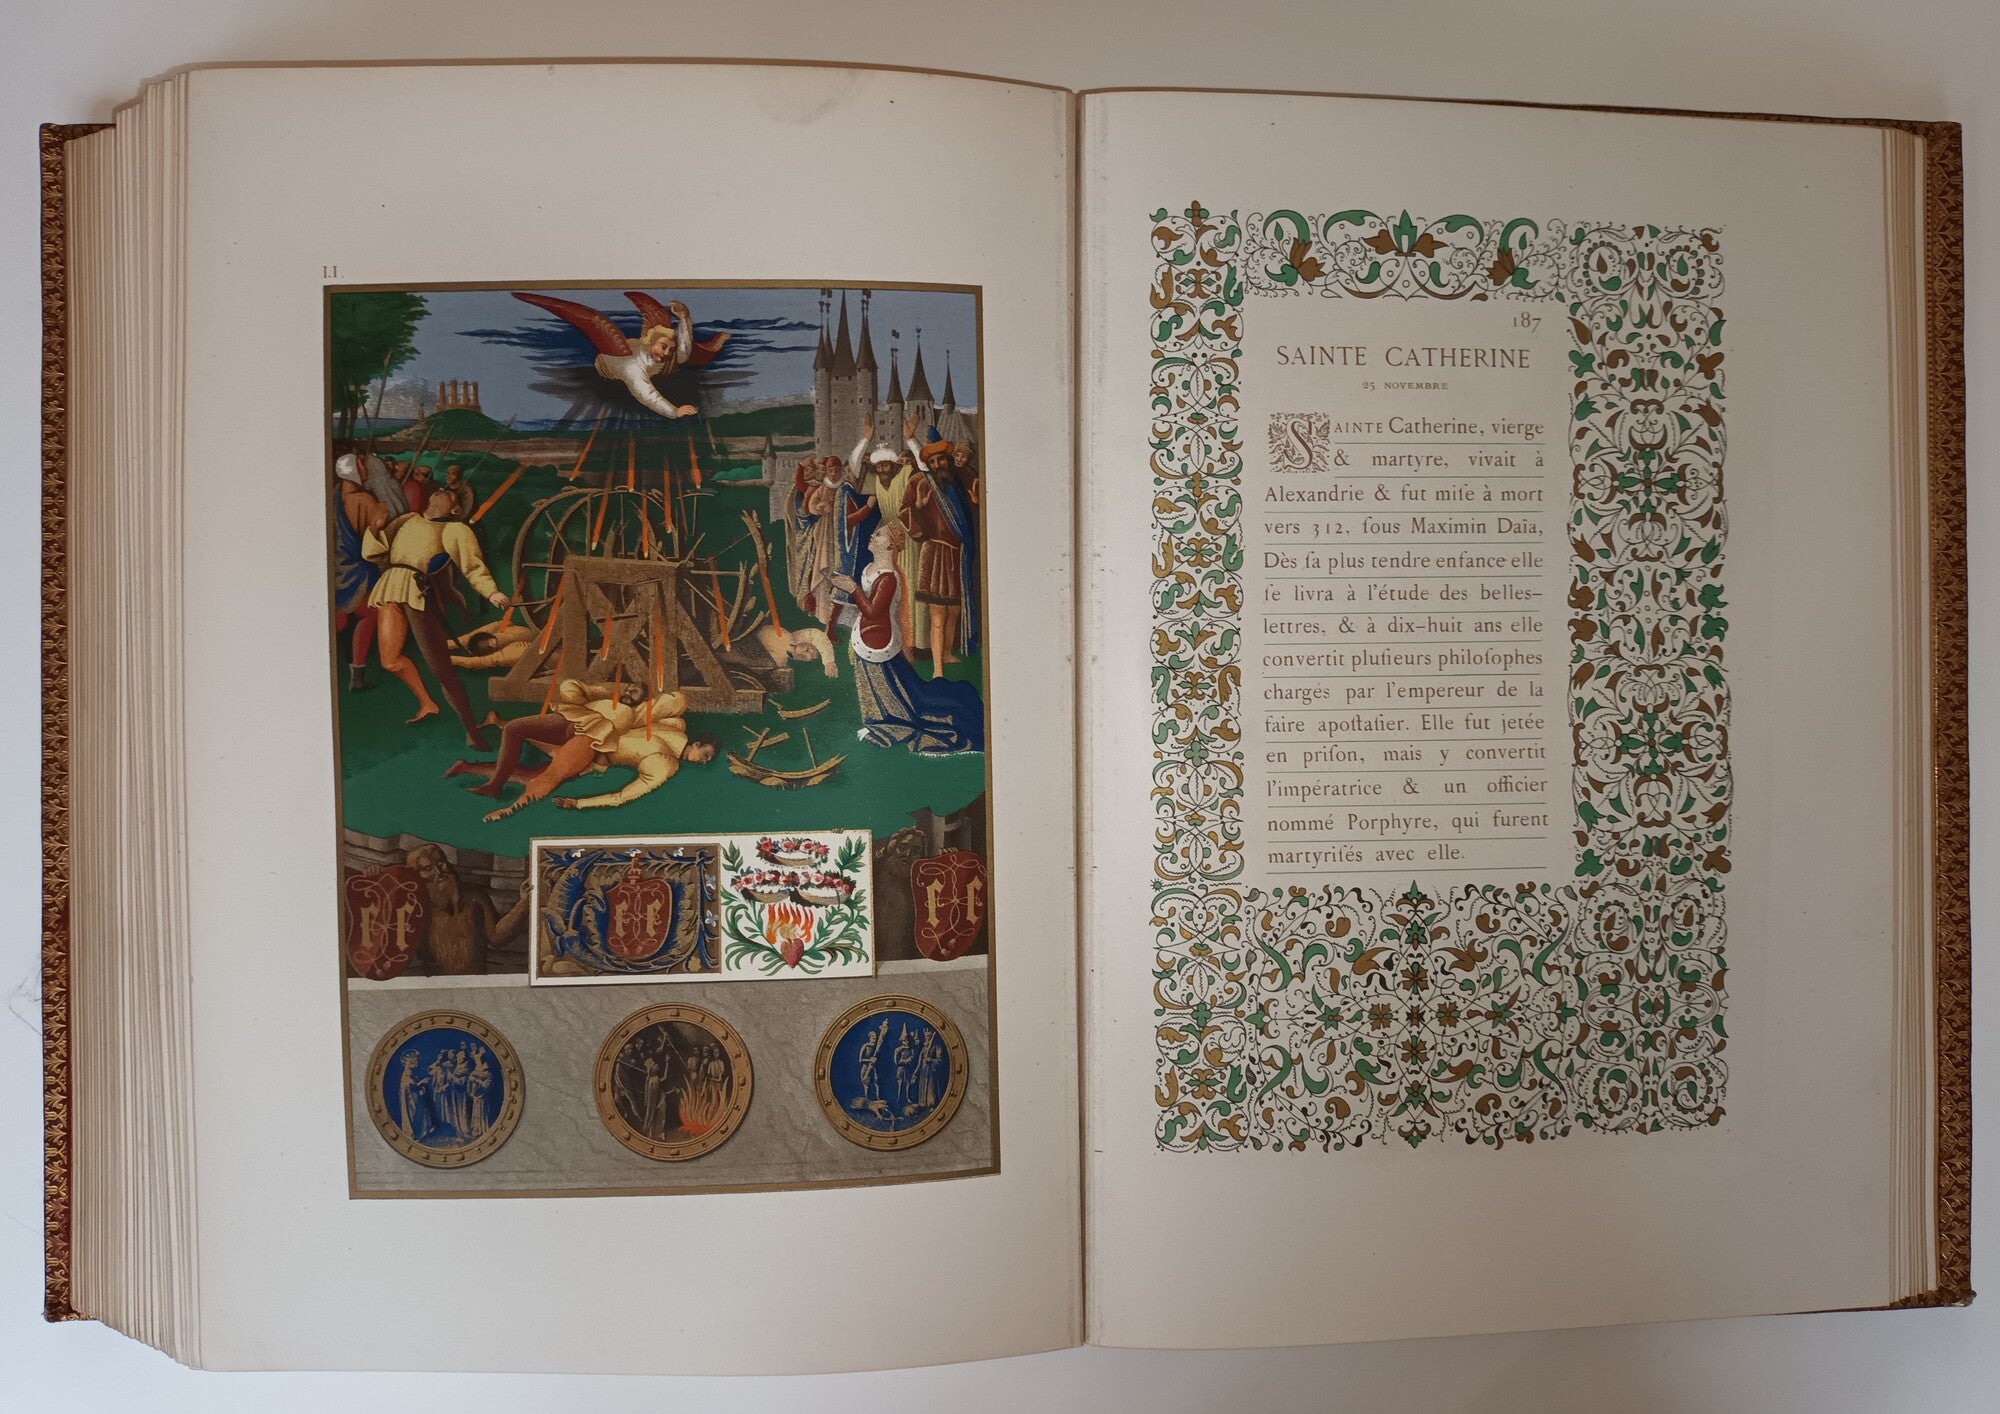 I.I.
E E
E E
E E
187
SAINTE CATHERINE
25 NOVEMBRE
SAINTE Catherine, vierge
& martyre, vivait à
Alexandrie & fut miſe à mort
vers 312, ſous Maximin Daïa,
Dès ſa plus tendre enfance elle
ſe livra à l'étude des belles-
lettres, & à dix-huit ans elle
convertit pluſieurs philoſophes
chargés par l'empereur de la
faire apoſtaſier. Elle fut jetée
en priſon, mais y convertit
l'impératrice & un officier
nommé Porphyre, qui furent
martyriſés avec elle.